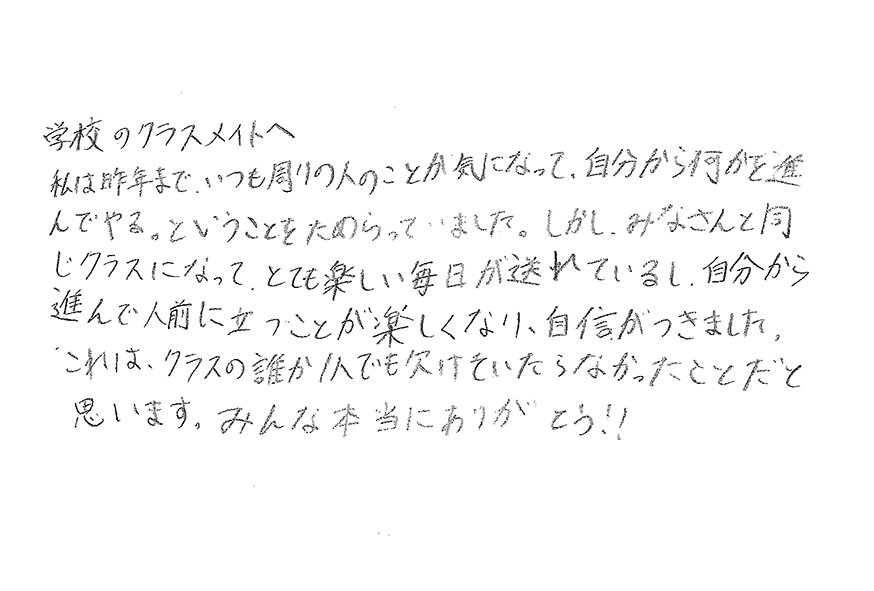 学校のクラスメイトへ
私は昨年まで、いつも周りの人のことが気になって、自分から何かを進
んでやる。ということをためらっていました。しかし、みなさんと同
じクラスになって、とても楽しい毎日が送れているし、自分から
進んで人前に立つことが楽しくなり、自信がつきました。
これは、クラスの誰か1人でも欠けていたらなかったことだと
思います。みんな本当にありがとう!!